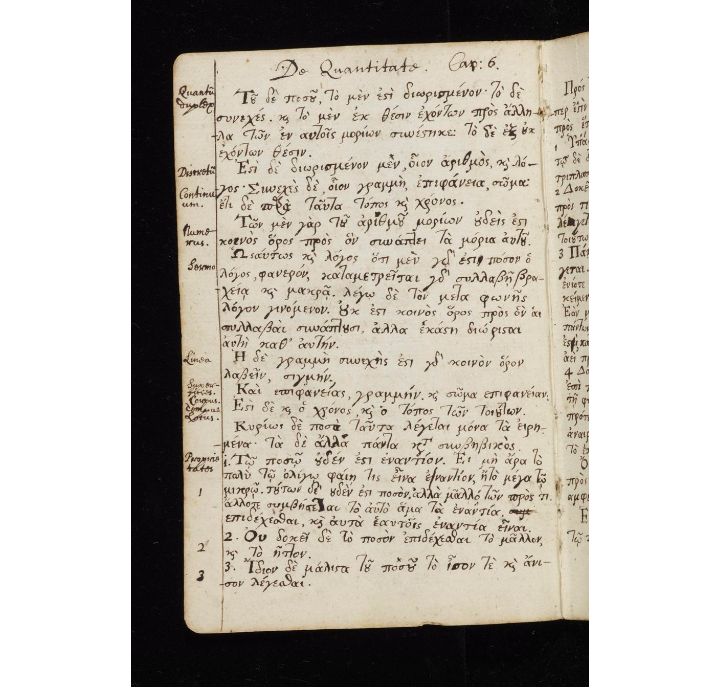 De Quantitate. Cap: 6.
Quantū
duplex
Τȣ͂ δὲ ποσȣ͂, τὸ μὲν ἐϛὶ διωρισμένον· τὸ δὲ
συνεχές. κ̀ τὸ μὲν ἐκ θέσιν ἐχόντων πρὸς ἄλλη-
λα τῶν ἐν αὐτοῖς μορίων συνέϛηκε· τὸ δὲ ἐξ ȣ̓κ
ἐχόντων θέσιν.
Discretū
Εϛὶ δὲ διωρισμένον μὲν, οἷον ἀριθμὸς, κ̀ λό-
Continu-
um.
γος· Συνεχὲς δὲ, οἷον γραμμὴ, ἐπιφάνεια, σῶμα·
ἔτι δὲ ταῦτα τόπος κ̀ χρονος.
Nume-
rus.
Τῶν μὲν γὰρ τȣ͂ ἀριθμȣ͂ μορίων ȣ̓δείς ἐϛι
κοινὸς ὅρος πρὸς ὃν συνάπτει τὰ μόρια αὐτȣ͂.
Sermo
Ωσαύτως κ̀ λόγος ὅτι μὲν γδ̀ ἐϛὶ ποσὸν ὁ
λόγος, φανερόν, καταμετρεῖται γδ̀ συλλαβῇ βρα-
χείᾳ κ̀ μακρᾷ. λέγω δὲ τὸν μετα φωνῆς
λόγον γινόμενον. ȣ̓κ ἐϛι κοινὸς ὅρος πρὸς ὃν αἱ
συλλαβαὶ συνάπτȣσι, ἀλλα ἑκάϛη διώρισαι
αὐτὴ καθ' αὑτήν.
Linea
Η δὲ γραμμὴ συνεχής ἐϛι γδ̀ κοινὸν ὅρον
λαβεῖν, ϛιγμήν,
Superfi-
cies.
Corpus.
Tempus
Locus.
Καὶ ἐπιφανείας, γραμμήν. κ̀ σῶμα ἐπιφανείαν.
Εϛι δὲ κ̀ ὁ χρόνος, κ̀ ὁ τόπος τῶν τοιȣ́των.
Κυρίως δὲ ποσὰ ταῦτα λέγεται μόνα τὰ εἰρη-
μένα· τὰ δὲ ἄλλα πάντα κτ̀ συμβηβικὸς.
Proprie-
tates
1
1. Τῷ ποσῷ ȣ̓δέν ἐϛι ἐναντίον. Ει μὴ ἄρα τὸ
πολὺ τῷ ὀλίγῳ φαίη τις εἶναι ἐναντίον, ἢ τὸ μεγα τῷ
μικρῷ. τȣ́των δὲ ȣ̓δὲν ἐϛι ποσὸν, ἀλλὰ μᾶλλον τῶν πρός τι
ἄλλοτε συμβήσεται τὸ αὐτὸ ἅμα τὰ ἐναντία,
ἐπιδέχεϑαι, κ̀ αὐτὰ ἑαυτοῖς ἐναντία εἶναι.
2
2. Ου δοκεῖ δὲ τὸ ποσὸν ἐπιδέχεϑαι τὸ μᾶλλον,
κ̀ τὸ ἧττον.
3
3. Ἴδιον δὲ μάλιϛα τȣ͂ ποσȣ͂ τὸ ἶσον τὲ κ̀ ἄνι-
σον λέγεϑαι.